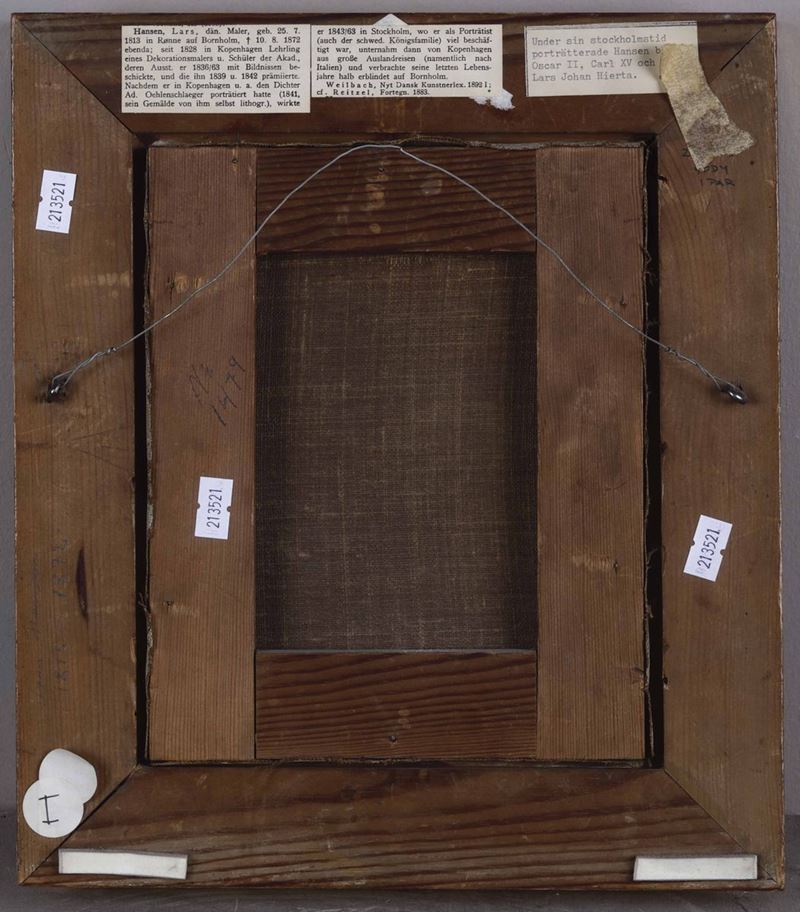 Hansen, Lars, dän. Maler, geb. 25. 7.
1813 in Rønne auf Bornholm, † 10. 8. 1872
ebenda; seit 1828 in Kopenhagen Lehrling
eines Dekorationsmalers u. Schüler der Akad.,
deren Ausst. er 1836/63 mit Bildnissen be-
schickte, und die ihn 1839 u. 1842 prämiierte.
Nachdem er in Kopenhagen u. a. den Dichter
Ad. Oehlenschlaeger porträtiert hatte (1841,
sein Gemälde von ihm selbst lithogr.), wirkte
er 1843/63 in Stockholm, wo er als Porträtist
(auch der schwed. Königsfamilie) viel beschäf-
tigt war, unternahm dann von Kopenhagen
aus große Auslandreisen (namentlich nach
Italien) und verbrachte seine letzten Lebens-
jahre halb erblindet auf Bornholm.
Weilbach, Nyt Dansk Kunstnerlex. 1892 I;
cf. Reitzel, Fortegn. 1883.
Under sin stockholmstid
porträtterade Hansen
Oscar II, Carl XV och
Lars Johan Hierta.
213521
1479
213521
213521
H